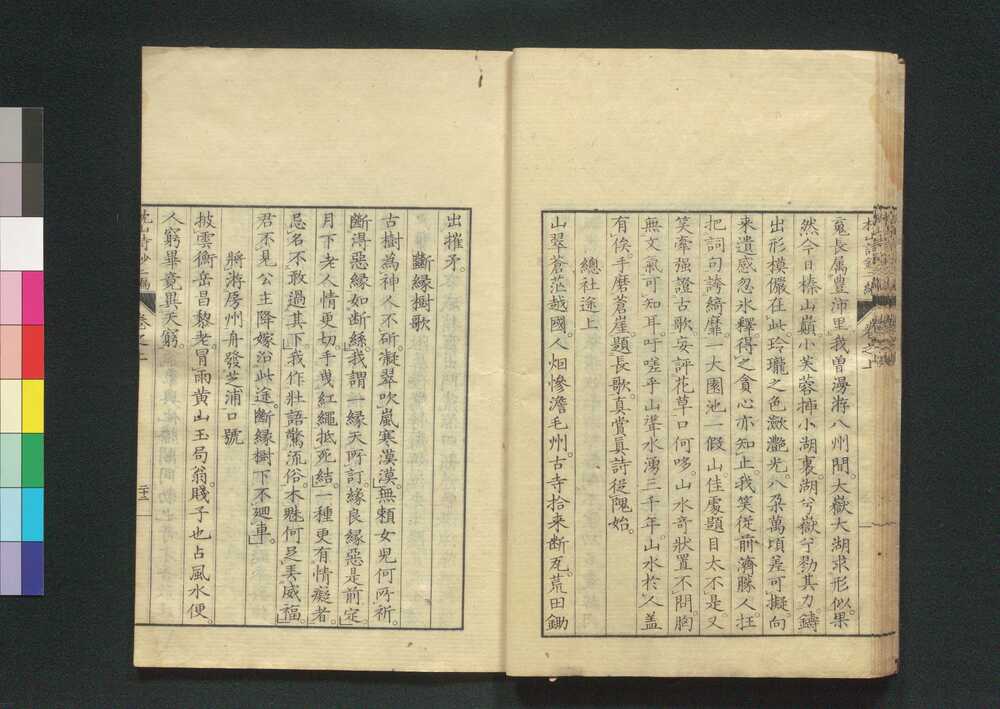 竟長属豊沛里我曽漫游八州間。大嶽大湖求形似。果
然今日榛山巔小芙蓉挿小湖裏湖兮嶽兮勠其力。鑄
出形模儼在此玲瓏之色瀲灔光。八朶萬頃差可擬。向
来遺感忽氷釋得之貪心亦知止。我笑従前済勝人。抂
把詞句誇綺靡一大園池一假山佳處題目太不是又
笑牽强證古歌。妄評花草口何哆。山水竒狀置不問。胸
無文氣可知耳。吁嗟乎山聳水湧三千年。山水於人盖
有俟。手磨蒼崖題長歌。真賞真詩従隗始。
總社途上
山翠蒼茫越國。人烟慘澹毛州。古寺拾来断瓦。荒田鋤
出摧矛。
斷縁樹歌
古樹為神人不斫凝翠吹嵐寒漠漠。無頼女児何所祈。
斷淂惡縁如断絲。我謂一縁天所訂。縁良縁惡是前定。
月下老人情更切手曳紅繩抵死結。一種更有情癡者。
忌名不敢過其下我作壮語驚流俗。木魅何足弄威福。
君不見公主降嫁沿此途。断縁樹下不廻車。
將游房州舟發芝浦口號
披雲衡岳昌黎老。冒雨黄山玉局翁。賤子也占風水便。
人窮畢竟異天窮。
枕山詩鈔二編 卷之二 二十二